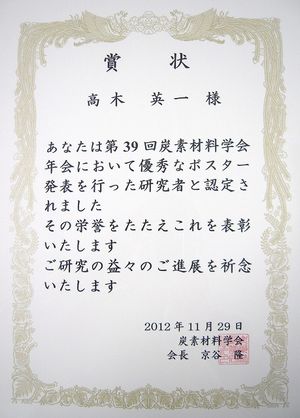 賞状
高木 英一 様
あなたは第39回炭素材料学会
年会において優秀なポスター
発表を行った研究者と認定さ
れました
その栄誉をたたえこれを表彰
いたします
ご研究の益々のご進展を祈念
いたします
2012年11月29日
炭素材料学会
会長 京谷 隆